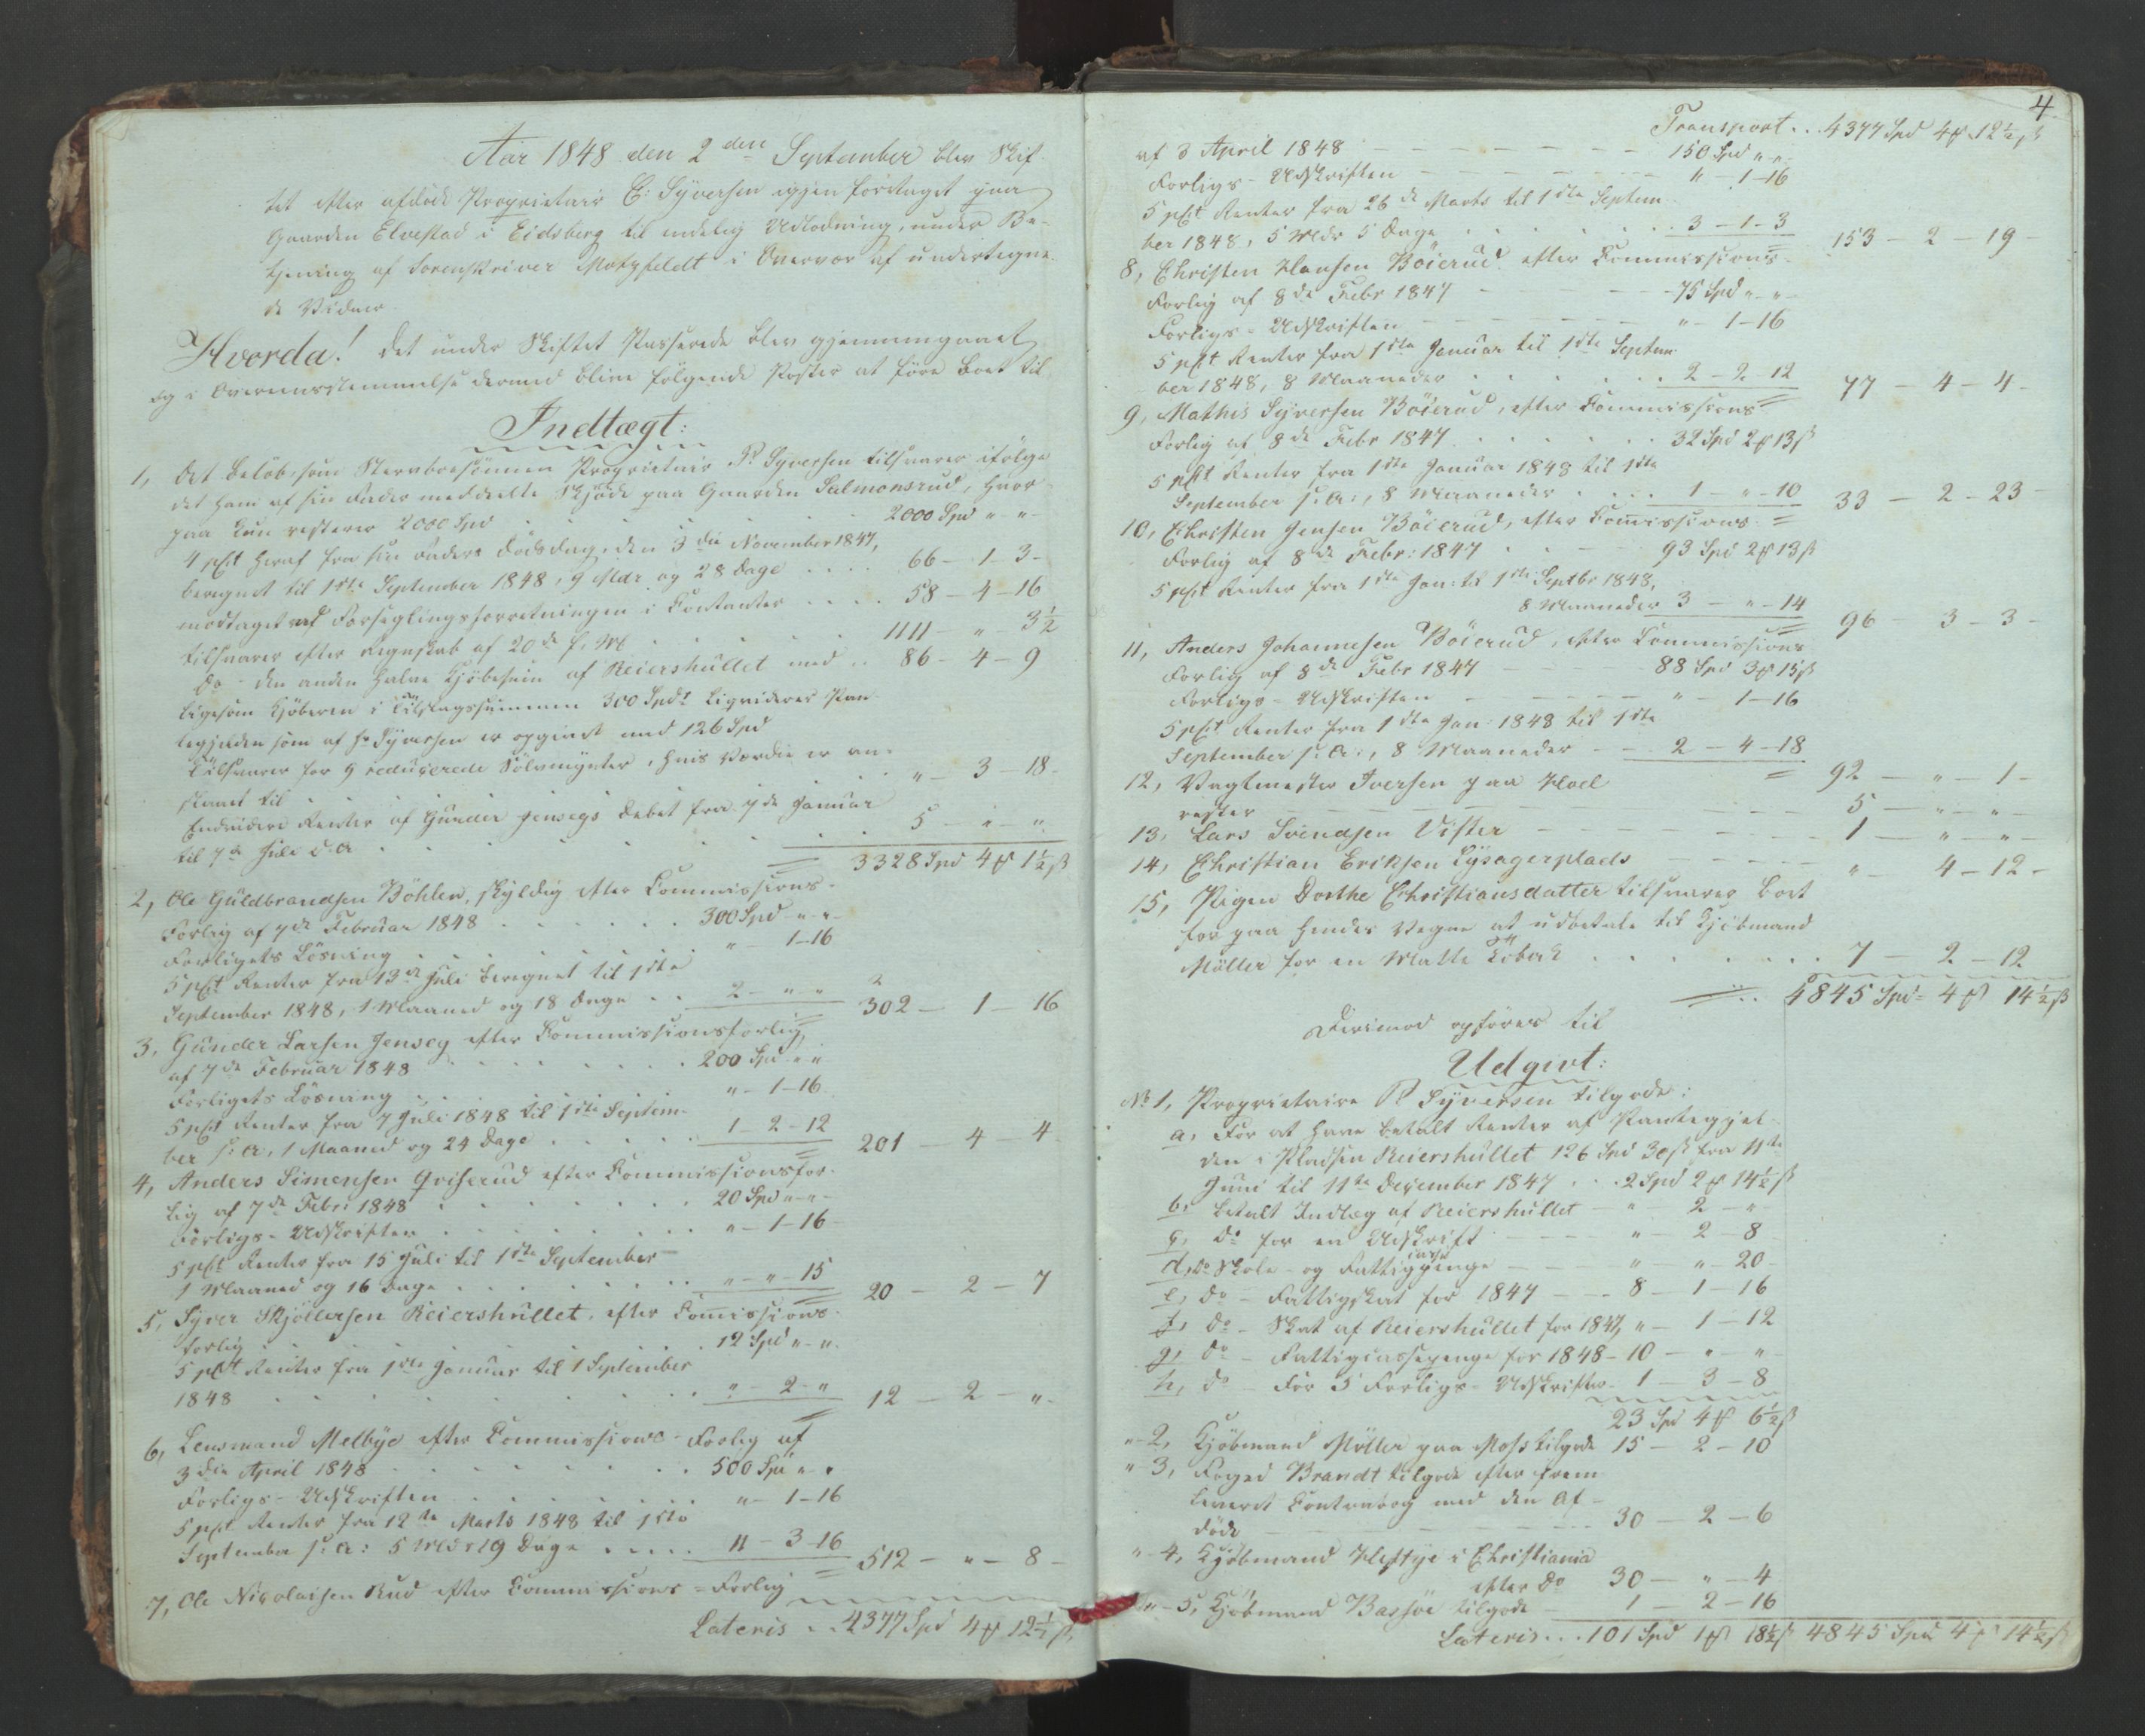 Aar 1848 den 2den September blev Skif-
tet efter afdøde Proprietair E: Syversen igjen foretaget paa
Gaarden Elvestad i Eidsberg til endelig Udlodning, under Be-
tjening af Sorenskriver Motzfeldt i Overvær af undertegne-
de Vidner.
Hvorda! det under Skiftet Passerede blev gjennemgaaet
og i Overeensstemmelse dermed blive følgende Poster at føre Boet til
Indtægt:
1, Det Beløb, som Stervboesønnen Proprietair P. Syversen tilsvarer ifølge
det ham af sin Fader meddeelte Skjøde paa Gaarden Salmonsrud, hvor-
paa kun resterer 2000 Spd . . . 2000 Spd " - "
4 pCt heraf fra sin Faders Dødsdag, den 3die November 1847,
beregnet til 1ste September 1848, 9 Mdr og 28 Dage . . . . 66 - 1 - 3 -
modtaget ved Forseglingsforretningen i Contanter . . . . 58 - 4 - 16
tilsvarer efter Regnskab af 20de f. M. . . . 1111 - " - 3½
do - den anden halve Kjøbesum af Reiershullet med . . 86 - 4 - 9
ligesom Kjøberen i Tilslagssummen 300 Spd liqviderer Pan-
tegjelden som af Hr Syversen er opgivet med 126 Spd
Tilsvarer for 9 reducerede Sølvmynter, hvis Værdie er an-
slaaet til . . . " - 3 - 18 -
Endvidere Renter af Gunder Jensegs Debet fra 7de Januar
til 7de Juli d. A. . . . 5 - " - "
3328 Spd 4 ₰ 1½ ß
2, Ole Guldbrandsen Bøhler, skyldig efter Commissions-
Forlig af 7de Februar 1848 . . . 300 Spd " - "
Forligets Løsning . . . " - 1 - 16
5 pCt Renter fra 13de Juli beregnet til 1ste
September 1848, 1 Maaned og 18 Dage . . 2 - " - " 302 - 1 - 16
3, Gunder Larsen Jenseg efter Commissionsforlig,
af 7de Februar 1848 . . . 200 Spd " - "
Forligets Løsning . . . " - 1 - 16
5 pCt Renter fra 7 Juli 1848 til 1ste Septem-
ber s: A, 1 Maaned og 24 Dage . . . 1 - 2 - 12 201 - 4 - 4
4, Anders Simensen Griserud efter Commissionsfor-
lig af 7de Febr: 1848 . . . 20 Spd " - "
Forligs-Udskriften . . . " - 1 - 16
5 pCt Renter fra 15 Juli til 1ste September
1 Maaned og 16 Dage . . . " - " - 15 20 - 2 - 7
5, Syver Skjøllersen Reiershullet, efter Comissions-
forlig . . . 12 Spd " - "
5 pCt Renter fra 1ste Januar til 1 September
1848 . . . " - 2 - " 12 - 2 - "
6, Lensmand Melbye efter Commissions-Forlig af
3die April 1848 . . . 500 Spd " - "
Forligs-Udskriften . . . " - 1 - 16
5 pCt Renter fra 12te Marts 1848 til 1ste
September s: A: 5 Mdr 19 Dage . . . . 11 - 3 - 16 512 - " - 8 -
7, Ole Nicolaisen Rud efter Commissions-Forlig
Lateris . . 4377 Spd 4 ₰ 12½ ß
4
Transport . . 4377 Spd 4 ₰ 12½ ß
af 3 April 1848 - - - 150 Spd " - "
Forligs-Udskriften - - - " - 1 - 16
5 pCt Renter fra 26de Marts til 1ste Septem-
ber 1848, 5 Mdr 5 Dage . . . 3 - 1 - 3 153 - 2 - 19 -
8, Christen Hansen Bøierud efter Commissions-
Forlig af 8de Febr 1847 - - - 75 Spd " - "
Forligs-Udskriften - - - " - 1 - 16
5 pCt Renter fra 1ste Januar til 1ste Septem-
ber 1848, 8 Maaneder . . . 2 - 2 - 12 77 - 4 - 4 -
9, Mathis Syversen Bøierud, efter Commissions-
Forlig af 8de Febr 1847 . . . 32 Spd 2 ₰ 13 ß
5 pCt Renter fra 1ste Januar 1848 til 1ste
September s: A:, 8 Maaneder . . . . 1 - " - 10 33 - 2 - 23 -
10, Christen Jensen Bøierud, efter Comissions-
Forlig af 8de Febr: 1847 . . . 93 Spd 2 ₰ 13 ß
5 pCt Renter fra 1ste Jan: til 1ste Septbr 1848,
8 Maaneder 3 - " - 14 96 - 3 - 3 -
11, Anders Johannesen Bøierud, efter Commissions-
Forlig af 8de Febr 1847 - - - 88 Spd 3 ₰ 15 ß
Forligs-Udskriften - - - " - 1 - 16
5 pCt Renter fra 1ste Jan: 1848 til 1ste
September s: A:, 8 Maaneder - - 2 - 4 - 18 92 - " - 1 -
12, Vagtmester Iversen paa Hoel
rester - - - 5 - " - " -
13, Lars Svendsen Vister - - - 1 - " - " -
14, Christian Eriksen Lysagerplads - - - " - 4 - 12 -
15, Pigen Dorthe Christiansdatter tilsvarer Boet
for paa hendes Vegne at udbetale til Kjøbmand
Møller for en Matte Tobak . . . 7 - 2 - 12
4845 Spd - 4 ₰ 14½ ß
Derimod opføres til
Udgivt:
No 1, Proprietaire P Syversen tilgode:
a, For at have betalt Renter af Pantegjel-
den i Pladsen Reiershullet 126 Spd 30 ß fra 11te
Juni til 11te December 1847 . . . 2 Spd 2 ₰ 14½ ß
b, betalt Indlæg af Reiershullet - " - 2 - "
c, do for en Udskrift - - - " - 2 - 8
d, do Skole- og Fattigcassepenge - - - " - " - 20 -
e, do - Fattigskat for 1847 - - - 8 - 1 - 16
f, do - Skat af Reiershullet for 1847, " - 1 - 12
g, do - Fattigcassepenge for 1848 - 10 - " - "
h, do - For 5 Forligs-Udskrifter - 1 - 3 - 8
23 Spd 4 ₰ 6½ ß
" - 2, Kjøbmand Møller paa Moss tilgode 15 - 2 - 10
" 3, Foged Brandt tilgode efter frem-
leveret Contrabog med den Af-
døde - - - 30 - 2 - 6
" - 4, Kjøbmand Heftye i Christiania
efter do 30 - " - 4
" - 5, Kjøbmand Bassøe tilgode - 1 - 2 - 16
Lateris . . . 101 Spd 1 ₰ 18½ ß 4845 Spd 4 ₰ 14½ ß